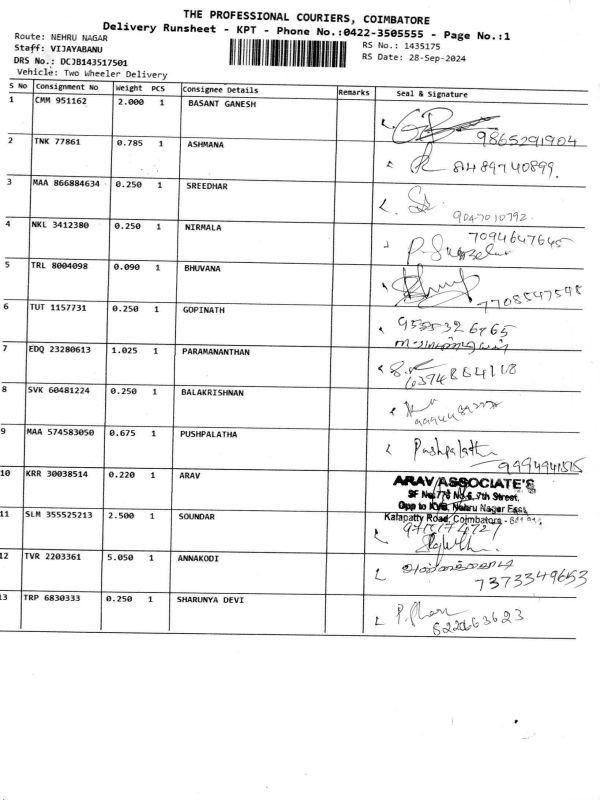 THE PROFESSIONAL COURIERS, COIMBATORE
Delivery Runsheet - KPT - Phone No.:0422-3505555 - Page No.:1
Route: NEHRU NAGAR
RS No.: 1435175
Staff: VIJAYABANU
RS Date: 28-Sep-2024
DRS No.: DCJB143517501
Vehicle: Two Wheeler Delivery
S No Consignment No Weight PCS Consignee Details Remarks Seal & Signature
1 CMM 951162 2.000 1 BASANT GANESH
9865291904
2 TNK 77861 0.785 1 ASHMANA
8489740899.
3 MAA 866884634 0.250 1 SREEDHAR
9047010792.
4 NKL 3412380 0.250 1 NIRMALA
7094647645
5 TRL 8004098 0.090 1 BHUVANA
7708547548
6 TUT 1157731 0.250 1 GOPINATH
7 EDQ 23280613 1.025 1 PARAMANANTHAN
6374884118
8 SVK 60481224 0.250 1 BALAKRISHNAN
9 MAA 574583050 0.675 1 PUSHPALATHA
Pushpalatha
9994941515
10 KRR 30038514 0.220 1 ARAV
ARAV ASSOCIATE'S
SF No.776 No.6, 7th Street,
Opp to KVB, Nehru Nagar East,
Kalapatty Road, Coimbatore -
11 SLM 355525213 2.500 1 SOUNDAR
12 TVR 2203361 5.050 1 ANNAKODI
அன்னக்கொடி
7373349653
13 TRP 6830333 0.250 1 SHARUNYA DEVI
8220663623